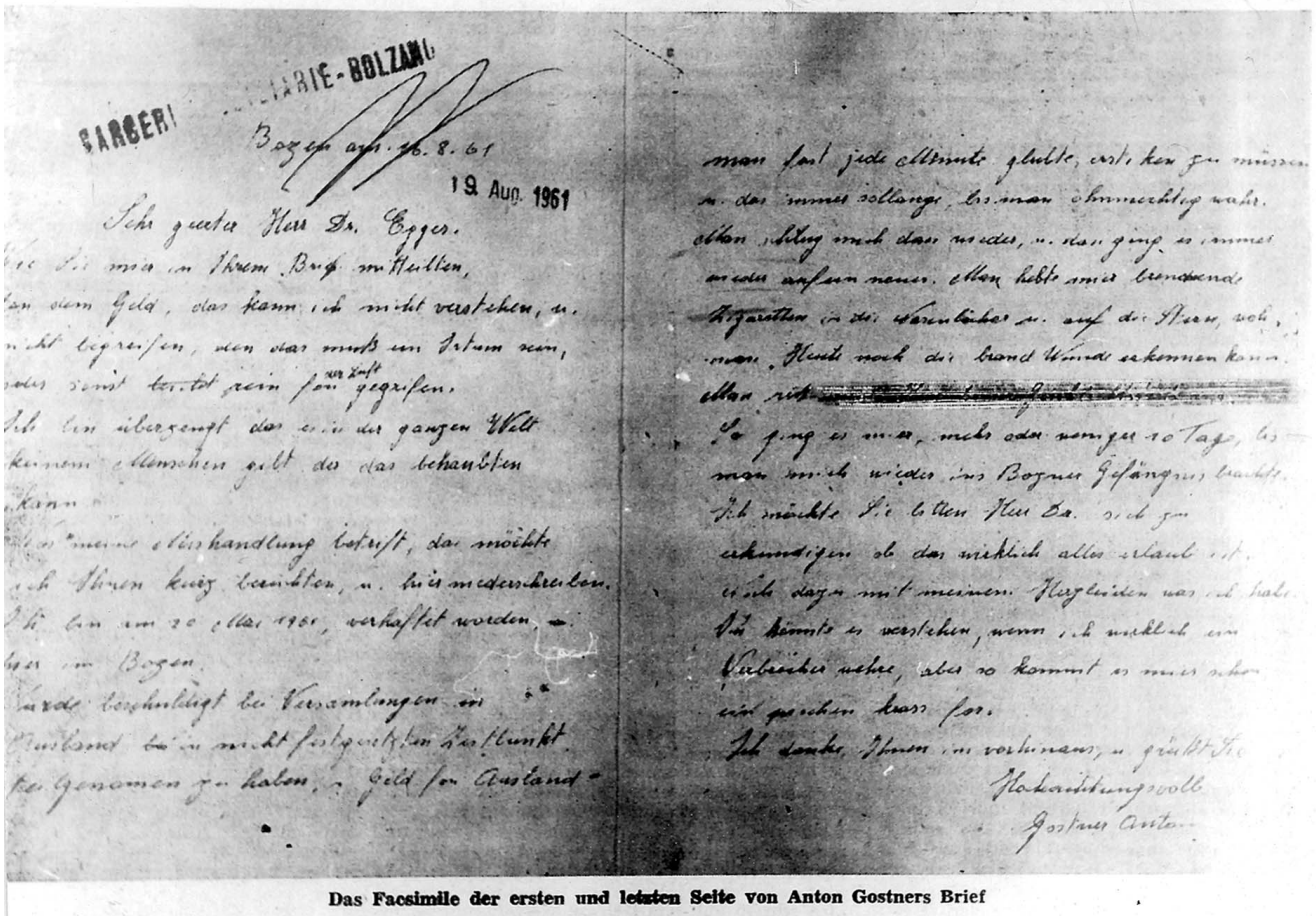 CARCERI GIUDIZIARIE-BOLZANO
Bozen am. 16.8.61
19. Aug. 1961
Sehr geerter Herr Dr. Egger.
Wie Sie mir in Ihrem Brief mitteilten,
an dem Geld, das kann ich nicht verstehen, u.
nicht begreifen, den das muß ein Irtum sein,
oder sonst rein fon der Luft gegrifen.
Ich bin überzeugt das es in der ganzen Welt
keinem Menschen gibt der das behaubten
kann.
Was meine Misshandlung betrift, das möchte
ich Ihnen kurz berichten, u. hier niederschreiben.
Ich bin am 20 Mai 1961, verhaftet worden
hier in Bozen.
Wurde beschuldigt bei Versamlungen in
Ausland in nicht festgesetzten Zeitbunkt
teilgenomen zu haben, u. Geld fon Ausland
man fast jede Minute glubte, ersticken zu müssen
u. das immer sollange, bis man ohnmechtig wahr.
Man schlug mich dan wieder, u. dan ging es immer
wieder aufein neues. Man hebte mier brennende
Zigaretten in die Nasenlöcher u. auf die Stirn,
man, Heute noch die brand Wunde erkennen kann.
Man
So ging es mier, mehr oder weniger 10 Tage, bis
man mich wieder ins Bozner Gefängnis brachte.
Ich möchte Sie bitten Herr Dr. sich zu
erkundigen ob das wirklich alles erlaub ist.
auch dazu mit meinem Herzleiden was ich habe.
Ich könnte es verstehen, wenn ich wirklich ein
Verbrecher wehre, aber so kommt es mier schon
ein krass for.
Ich danke, Ihnen im vorhinaus, u grüßt Sie
Hochachtungsvoll
Gostner Anton
Das Facsimile der ersten und letzten Seite von Anton Gostners Brief